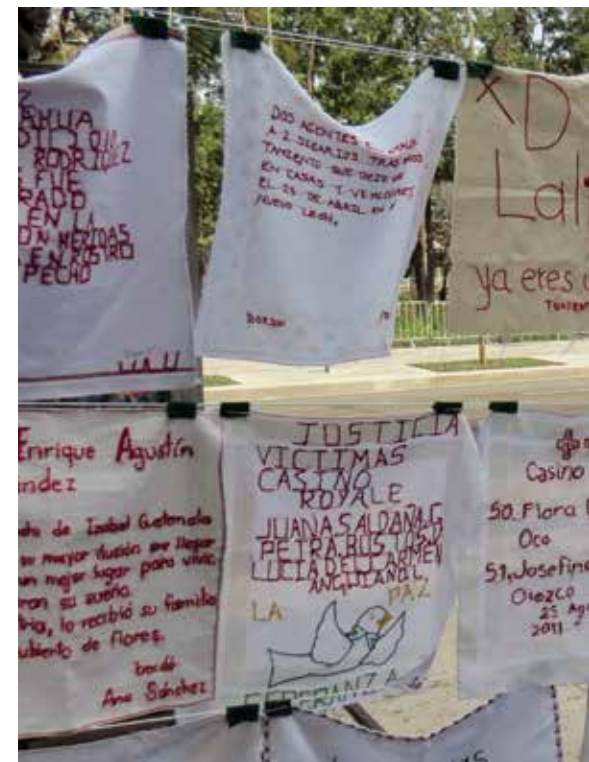 AHUA
RODRIGUEZ
FUE
RADO
EN LA
ON HERIDAS
EN ROSTRO
PECHO
DOS AGENTES
A 2 SICARIOS TRAS
TAMIENTO QUE DEJO
EN CASAS Y VEHICULOS
EL 25 DE ABRIL EN
NUEVO LEON.
BORDO
X D
Lal
Ya eres
Enrique Agustín
ndez
de Isabel Guatemala
su mejor ilusión era llegar
un mejor lugar para vivir,
su sueño
lo recibió su familia
ubierto de flores.
bordó
Ana Sánchez
JUSTICIA
VICTIMAS
CASINO
ROYALE
JUANA SALDAÑA G.
PETRA BUSTOS D.
LUCIA DEL CARMEN
ANGUIANO L.
LA PAZ
ESPERANZA
Casino
50. Flora
Oco
51. Josefin
Orozco
25 Ag
2011